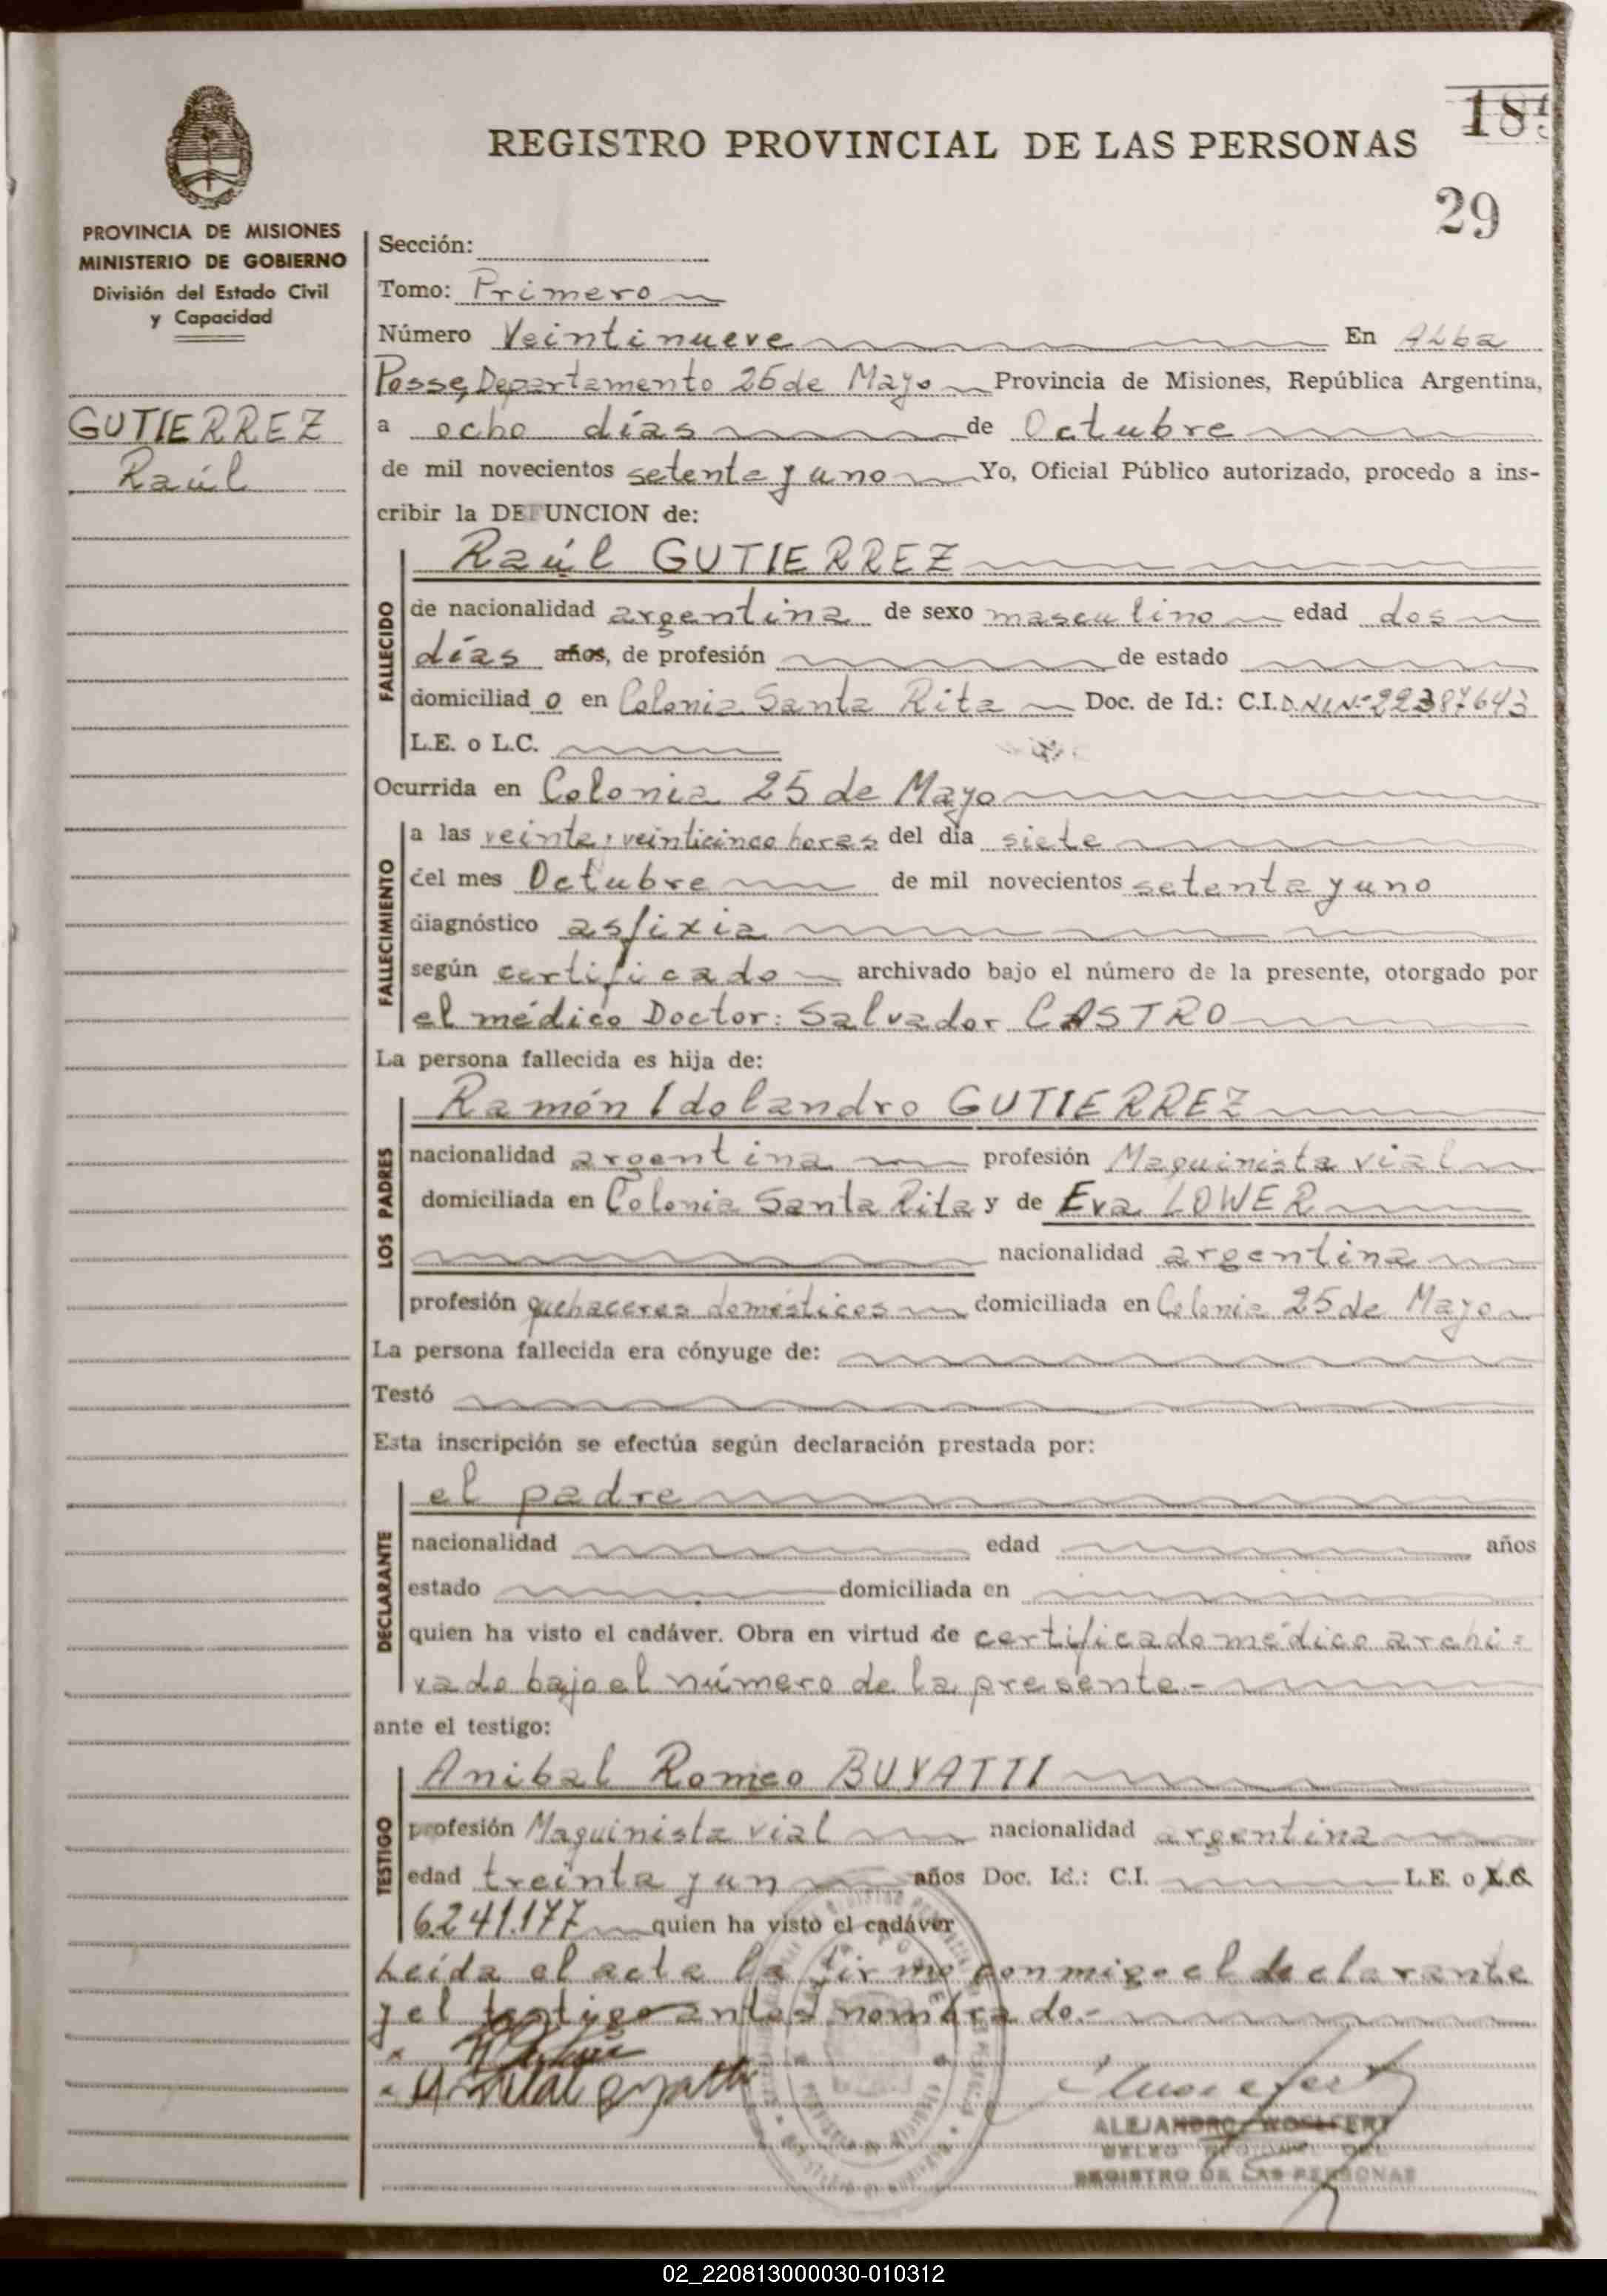 185
REGISTRO PROVINCIAL DE LAS PERSONAS
29
PROVINCIA DE MISIONES
MINISTERIO DE GOBIERNO
División del Estado Civil
y Capacidad
GUTIERREZ
Raúl
Sección:
Tomo: Primero
Número Veintinueve En Alba
Posse, Departamento 25 de Mayo Provincia de Misiones, República Argentina,
a ocho días de Octubre
de mil novecientos setenta y uno Yo, Oficial Público autorizado, procedo a ins-
cribir la DEFUNCION de:
Raúl GUTIERREZ
FALLECIDO
de nacionalidad argentina de sexo masculino edad dos
días años, de profesión de estado
domiciliado en Colonia Santa Rita Doc. de Id.: C.I. D.N.I.Nº 22387643
L.E. o L.C.
Ocurrida en Colonia 25 de Mayo
FALLECIMIENTO
a las veinte y veinticinco horas del día siete
del mes Octubre de mil novecientos setenta y uno
diagnóstico asfixia
según certificado archivado bajo el número de la presente, otorgado por
el médico Doctor: Salvador CASTRO
La persona fallecida es hija de:
LOS PADRES
Ramón Idolandro GUTIERREZ
nacionalidad argentina profesión Maquinista vial
domiciliada en Colonia Santa Rita y de Eva LOWER
nacionalidad argentina
profesión quehaceres domésticos domiciliada en Colonia 25 de Mayo
La persona fallecida era cónyuge de:
Testó
Esta inscripción se efectúa según declaración prestada por:
DECLARANTE
el padre
nacionalidad edad años
estado domiciliada en
quien ha visto el cadáver. Obra en virtud de certificado médico archi=
vado bajo el número de la presente.-
ante el testigo:
TESTIGO
Anibal Romeo BUYATTI
profesión Maquinista vial nacionalidad argentina
edad treinta y un años Doc. Id.: C.I. L.E. o L.C.
6.241.177 quien ha visto el cadáver
Leída el acta la firma conmigo el declarante
y el testigo antes nombrado.-
ALEJANDRO WOELFERT
REGISTRO DE LAS PERSONAS
02_220813000030-010312